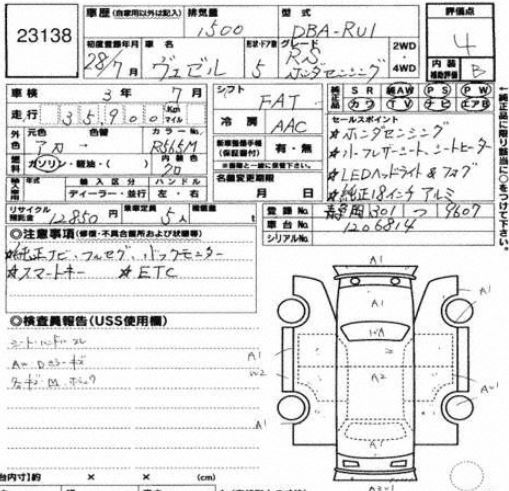 23138
車歴(自家用以外は記入) 排気量 型式 評価点
1500 DBA-RU1 4
初度登録年月 車名 形状・ドア数 グレード 2WD
28/7月 ヴェゼル 5 RS ホンダセンシング 4WD
内装補助評価 B
車検 3年 7月 シフト FAT
純正品 SR 純AW PS PW
カワ TV ナビ エアB
走行 35900 Km マイル 冷房 AAC
セールスポイント
外色 元色 色替 カラーNo.
アカ R565M
★ホンダセンシング
燃料 ガソリン・軽油・( ) 内装色 クロ
新車整備手帳(保証書付) 有・無
※車検と一緒に保管下さい。
★ハーフレザーシート、シートヒーター
輸入車 輸入区分 ハンドル
ディーラー・並行 左・右
名義変更期限
月 日
★LEDヘッドライト&フォグ
★純正18インチアルミ
リサイクル預託金 12850円 乗車定員 5人 積載量 t
登録No. 静岡301 つ 9607
車台No. 1206814
シリアルNo.
←純正品に限り該当に○をつけて下さい。
◎注意事項(修復・不具合箇所および状態等)
★純正ナビ・フルセグ・バックモニター
★スマートキー ★ETC
◎検査員報告(USS使用欄)
シート・ハンドルスレ
A1
A1
A1
A2
A1
A1
W2
A1
A1
台内寸]約 × × (cm)